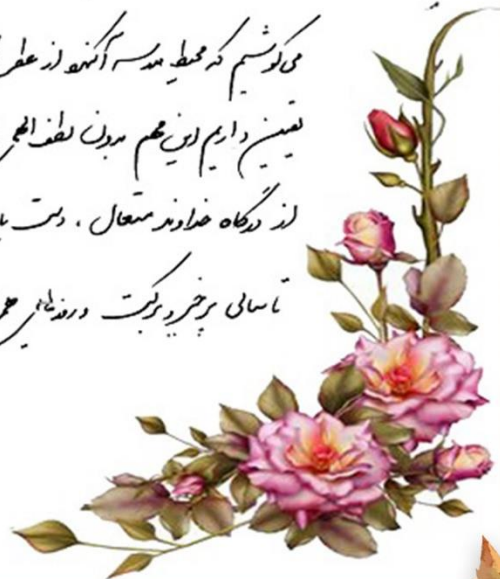 می‌کوشیم که محیط مدرسه آکنده از عطر
یقین داریم این مهم بدون لطف الهی
از درگاه خداوند متعال ، دست
تا سالی پرخیر و برکت و روزهایی